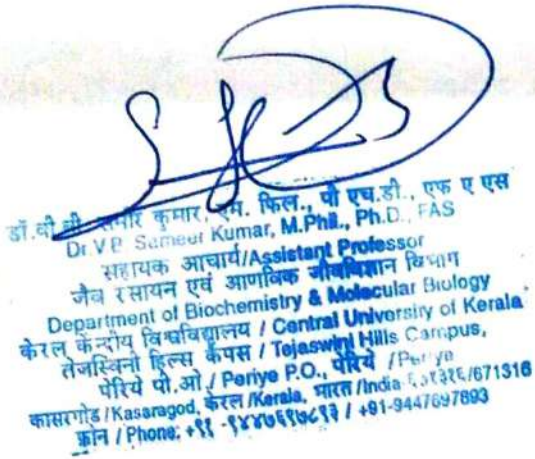 डॉ.वी.बी. समीर कुमार, एम. फिल., पी एच.डी., एफ ए एस
Dr.V.B. Sameer Kumar, M.Phil., Ph.D., FAS
सहायक आचार्य/Assistant Professor
जैव रसायन एवं आणविक जीवविज्ञान विभाग
Department of Biochemistry & Molecular Biology
केरल केन्द्रीय विश्वविद्यालय / Central University of Kerala
तेजस्विनी हिल्स कैंपस / Tejaswini Hills Campus,
पेरिये पी.ओ / Periye P.O., पेरिये /Periye
कासरगोड /Kasaragod, केरल /Kerala, भारत /India /671316
फ़ोन / Phone: +९१ -९४४७६९७८९३ / +91-9447697893